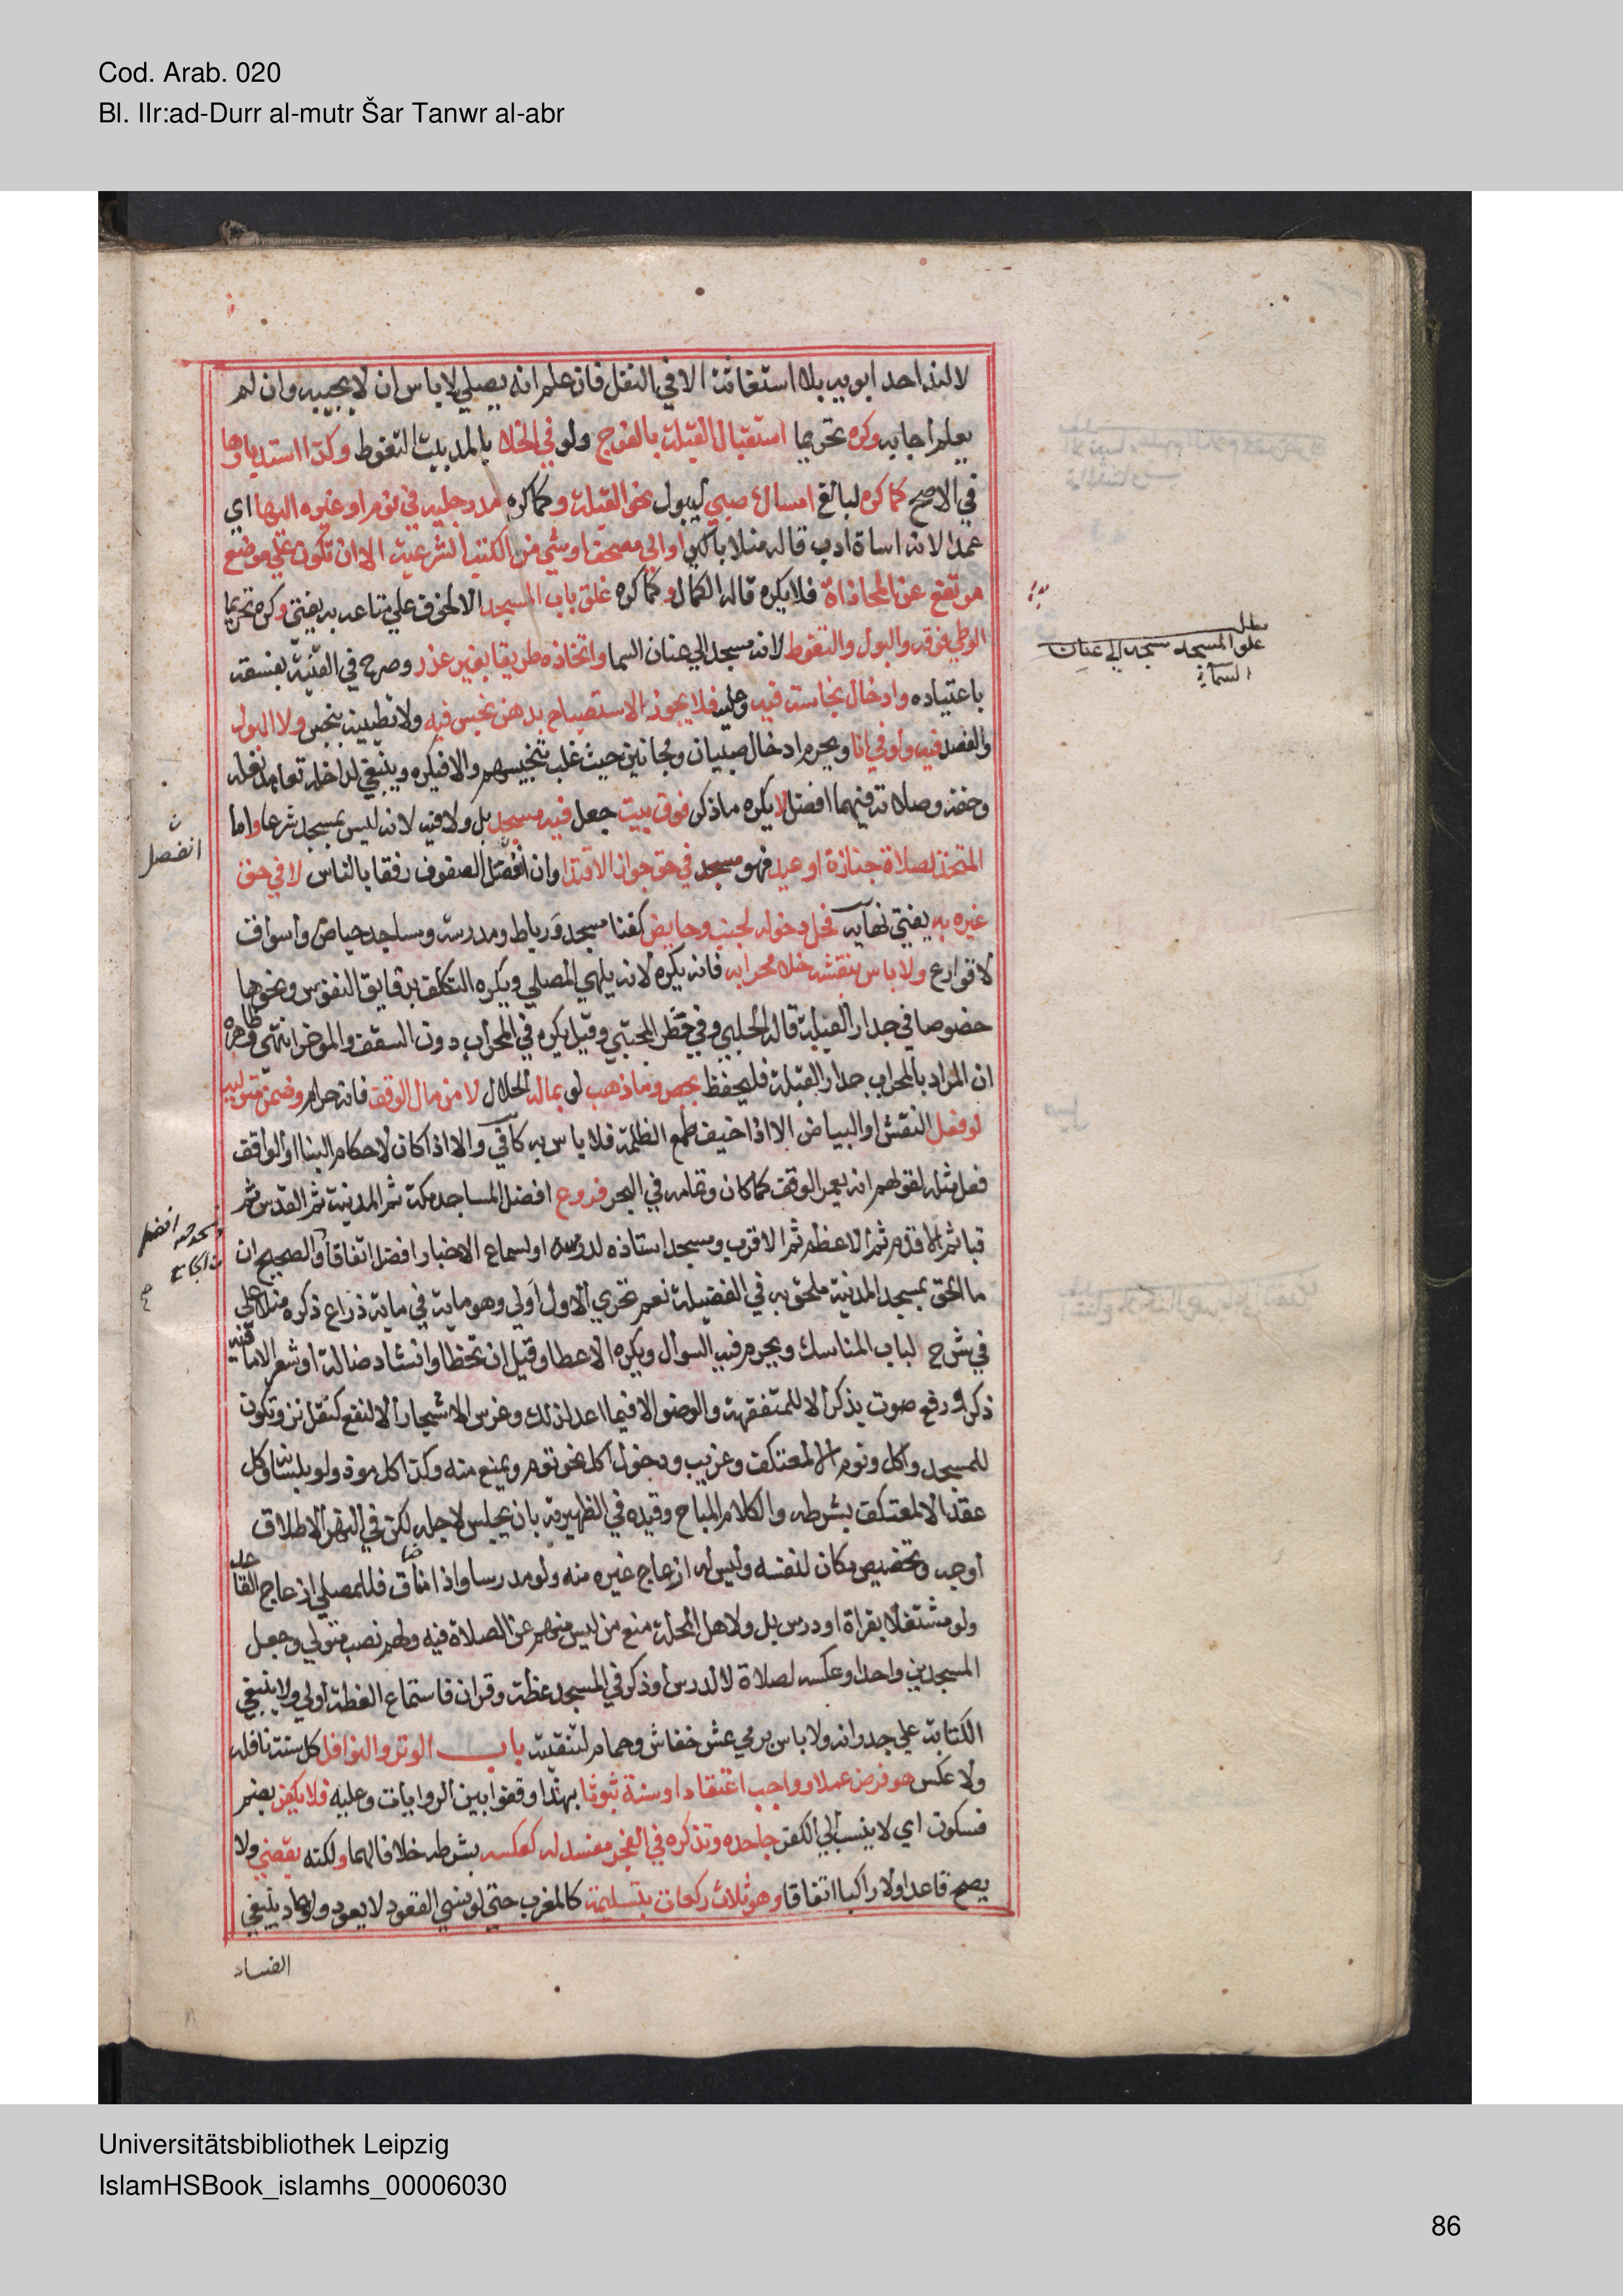 Cod. Arab. 020
Bl. IIr:ad-Durr al-mutr Šar Tanwr al-abr
لا لنداء احد ابويه بلا استغاثة الا في النفل فان علم انه يصلي لا باس ان لا يجيبه وان لم
يعلم اجابه وكره تحريما استقبال القبلة بالفرج ولو في الخلا بالمد بيت التغوط وكذا استدبارها
في الاصح كما كره لبالغ امساك صبي ليبول نحو القبلة وكما كره مد رجليه في نوم او غيره اليها اي
عمدا لانه اساة ادب قاله منلا باكير او الي مصحف او شي من الكتب الشرعية الا ان تكون علي موضع
مرتفع عن المحاذاة فلا يكره قاله الكمال وكما كره غلق باب المسجد الا لخوف علي متاعه به يفتي وكره تحريما
الوطي فوقه والبول والتغوط لانه مسجد الي عنان السما واتخاذه طريقا بغير عذر وصرح في القنية بفسقه
باعتياده وادخال نجاسة فيه وعليه فلا يجوز الاستصباح بدهن نجس فيه ولا تطيينه بنجس ولا البول
والفصد فيه ولو في انا ويحرم ادخال صبيان ومجانين حيث غلب تنجيسهم والا فيكره وينبغي لداخله تعاهد نعله
وخفه وصلاته فيهما افضل لا يكره ما ذكر فوق بيت جعل فيه مسجد بل ولا فيه لانه ليس بمسجد شرعا واما
المتخذ لصلاة جنازة او عيد فهو مسجد في حق جواز الاقتدا وان انفصل الصفوف رفقا بالناس لا في حق
غيره به يفتي نهاية فحل دخوله لجنب وحايض كفنا مسجد ورباط ومدرسة ومساجد حياض واسواق
لا قوارع ولا باس بنقشه خلا محرابه فانه يكره لانه يلهي المصلي ويكره التكلف بدقايق النقوش ونحوها
خصوصا في جدار القبلة قاله الحلبي وفي حظر المجتبي وقيل يكره في المحراب دون السقف والموخر انتهي وظاهره
ان المراد بالمحراب جدار القبلة فليحفظ بجص وما ذهب لو بماله الحلال لا من مال الوقف فانه حرام وضمن متوليه
لو فعل النقش او البياض الا اذا خيف طمع الظلمة فلا باس به كافي والا اذا كان لاحكام البنا او الواقف
فعل مثله لقولهم انه يعمر الوقف كما كان وتمامه في البحر فروع افضل المساجد مكة ثم المدينة ثم القدس ثم
قبا ثم الاقدم ثم الاعظم ثم الاقرب ومسجد استاذه لدرسه او لسماع الاخبار افضل اتفاقا والصحيح ان
ما الحق بمسجد المدينة ملحق به في الفضيلة نعم تحري الاول اولي وهو ماية في ماية ذراع ذكره منلا علي
في شرح لباب المناسك ويحرم فيه السوال ويكره الاعطا وقيل ان تخطا وانشاد ضالة او شعر الا ما فيه
ذكر ورفع صوت بذكر الا للمتفقهة والوضو الا فيما اعد لذلك وغرس الاشجار الا لنفع كتقل نز وتكون
للمسجد واكل ونوم الا لمعتكف وغريب ودخول اكل نحو ثوم ويمنع منه وكذا كل موذ ولو بلسانه وكل
عقد الا لمعتكف بشرطه والكلام المباح وقيده في الظهيرية بان يجلس لاجله لكن في النهر الاطلاق
اوجه وتخصيص مكان لنفسه وليس له ازعاج غيره منه ولو مدرسا واذا ضاق فللمصلي ازعاج القاعد
ولو مشتغلا بقراة او درس بل ولاهل المحلة منع من ليس منهم عن الصلاة فيه ولهم نصب متولي وجعل
المسجدين واحدا وعكسه لصلاة لا لدرس او ذكر في المسجد عظة وقران فاستماع العظة اولي ولا ينبغي
الكتابة علي جدرانه ولا باس برمي عش خفاش وحمام لتنقيته باب الوتر والنوافل كل سنة نافلة
ولا عكس هو فرض عملا وواجب اعتقادا وسنة ثبوتا بهذا وفقوا بين الروايات وعليه فلا يكفر بضم
فسكون اي لا ينسب الي الكفر جاحده وتذكره في الفجر مفسد له كعكسه بشرطه خلافا لهما ولكنه يقضي ولا
يصح قاعدا ولا راكبا اتفاقا وهو ثلاث ركعات بتسليمة كالمغرب حتي لو نسي القعود لا يعود ولو عاد ينبغي
الفساد
مطلب
علو المسجد مسجد الي عنان
السماء
انفصل
ومسجد حيه افضل
من الجامع
صح
Universitätsbibliothek Leipzig
IslamHSBook_islamhs_00006030
86